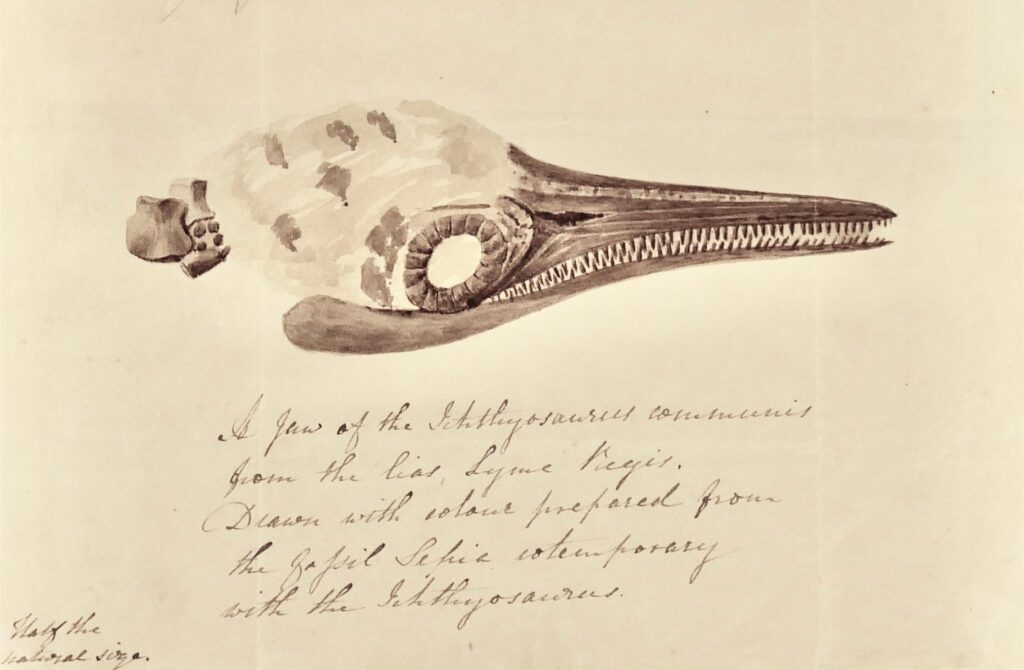 A Jaw of the Ichthyosaurus communis
from the lias, Lyme Regis.
Drawn with colour prepared from
the fossil Sepia cotemporary
with the Ichthyosaurus.
Half the
natural size.